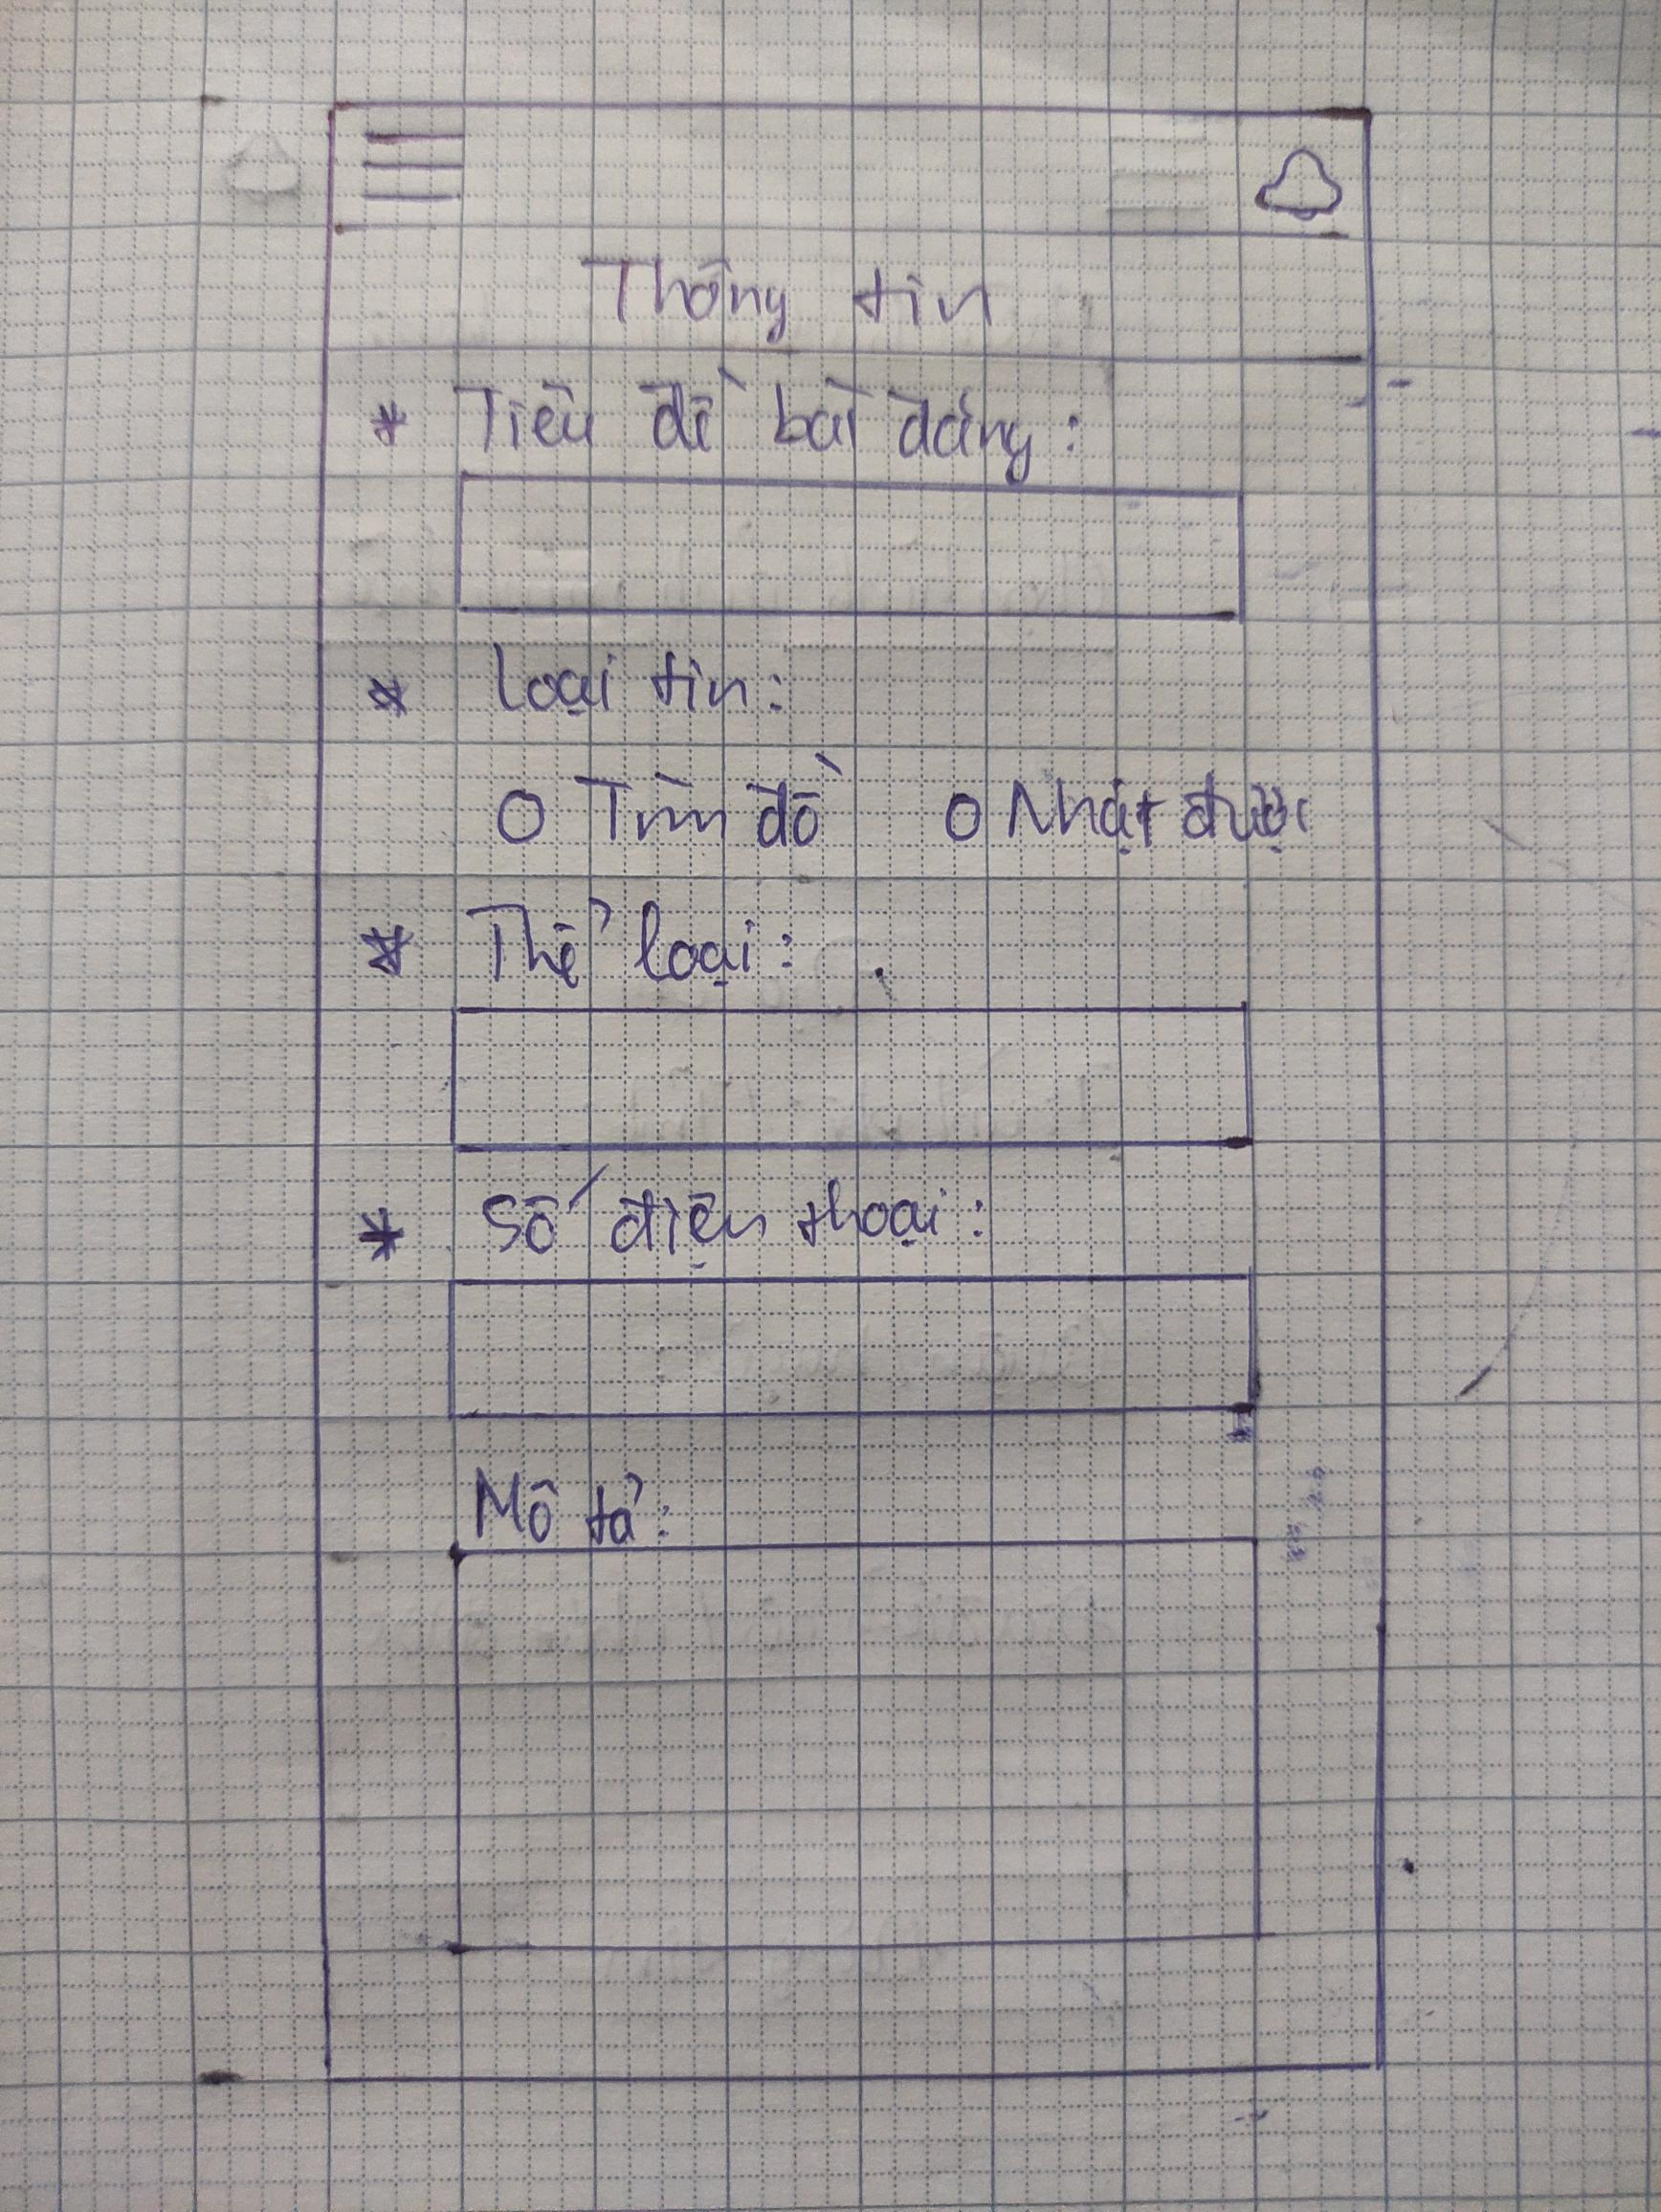 Thông tin
* Tiêu đề bài đăng:
* Loại tin:
O Tìm đồ O Nhặt được
* Thể loại:
* Số điện thoại:
Mô tả: